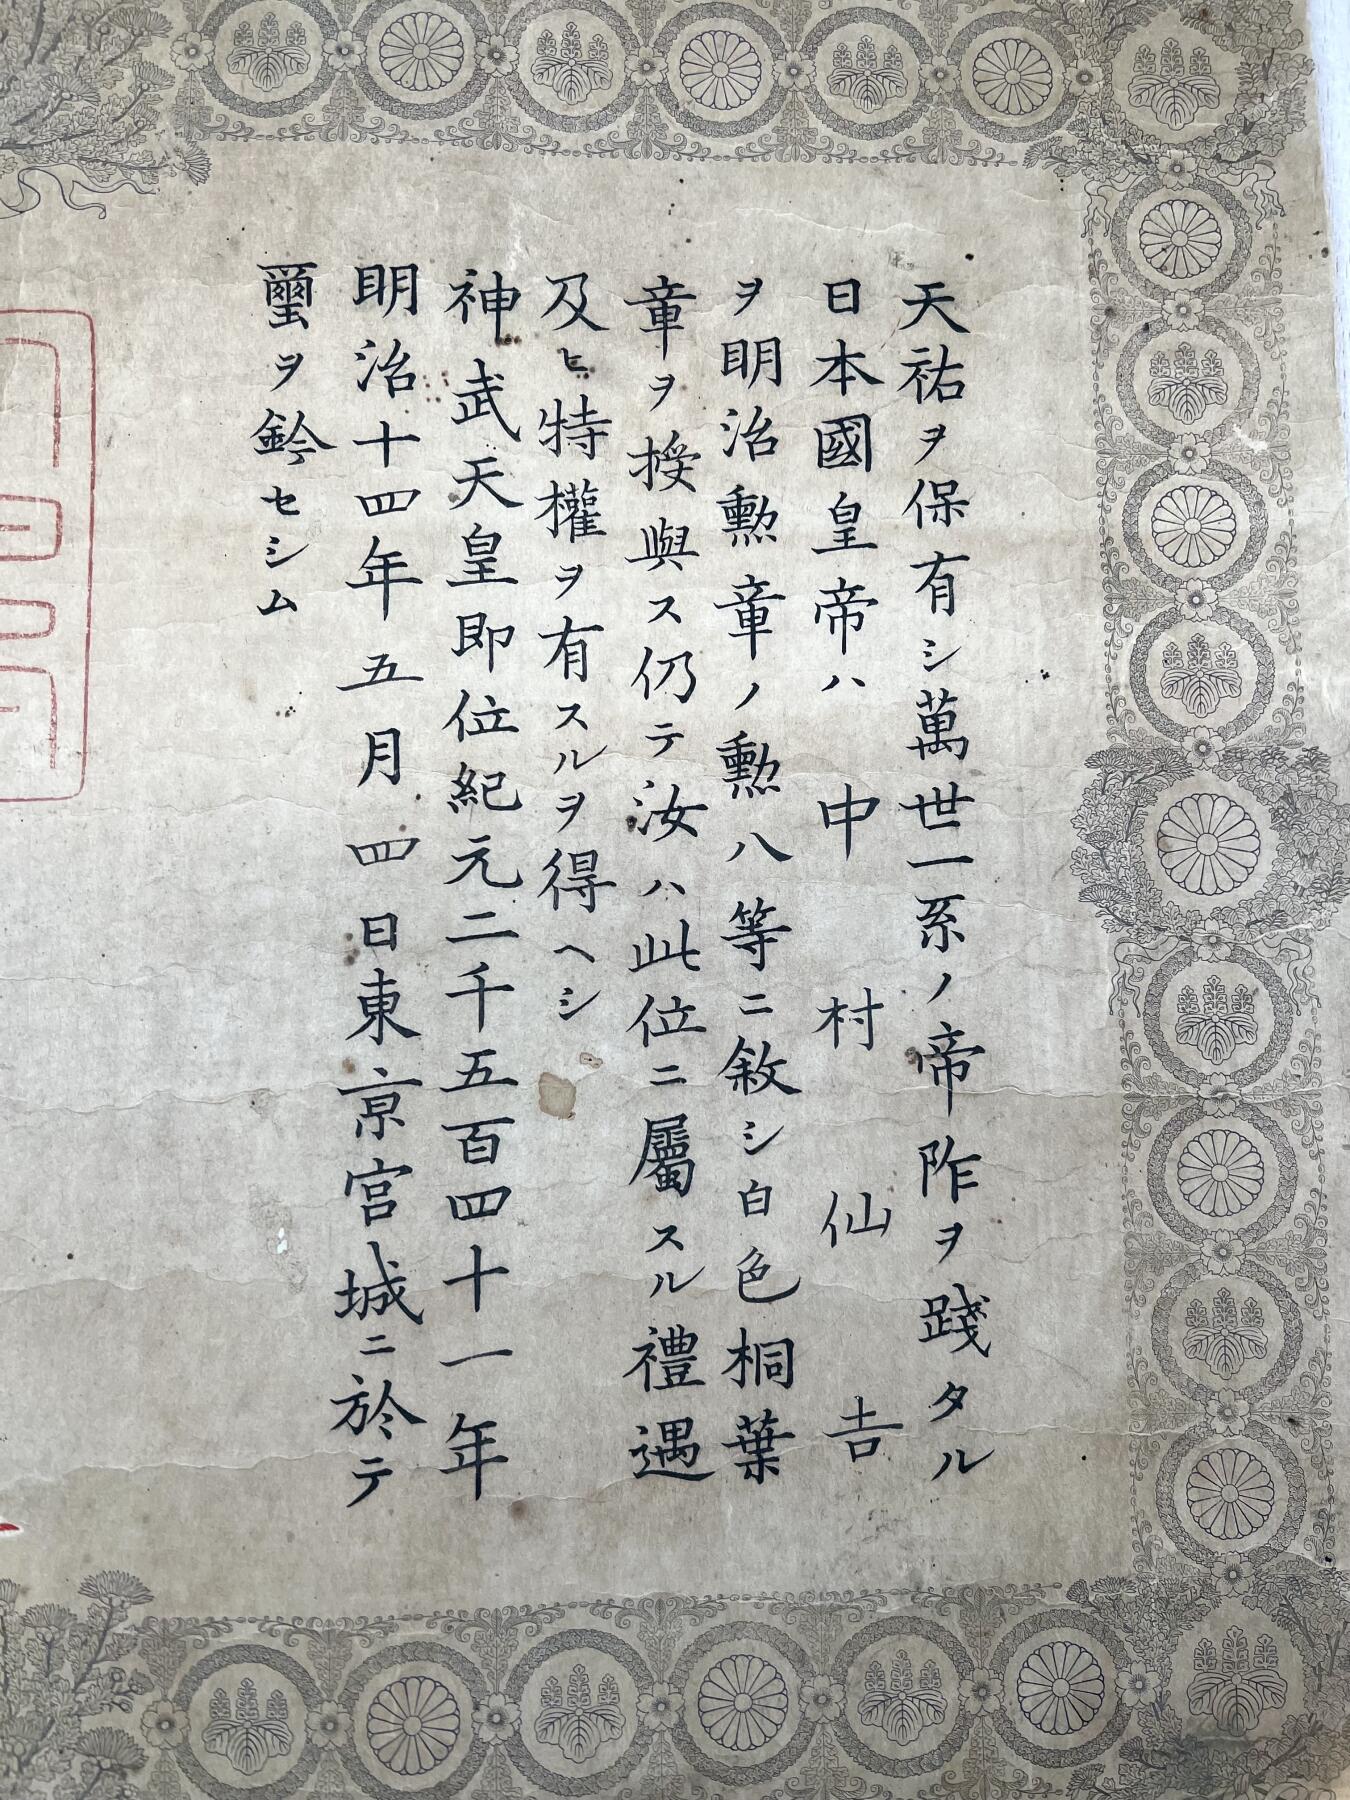 天祐ヲ保有シ萬世一系ノ帝阼ヲ踐タル
日本國皇帝ハ中村仙吉
ヲ明治勲章ノ勲八等ニ敘シ白色桐葉
章ヲ授與ス仍テ汝ハ此位ニ屬スル禮遇
及ヒ特權ヲ有スルヲ得ヘシ
神武天皇即位紀元二千五百四十一年
明治十四年五月四日東京宮城ニ於テ
璽ヲ鈐セシム